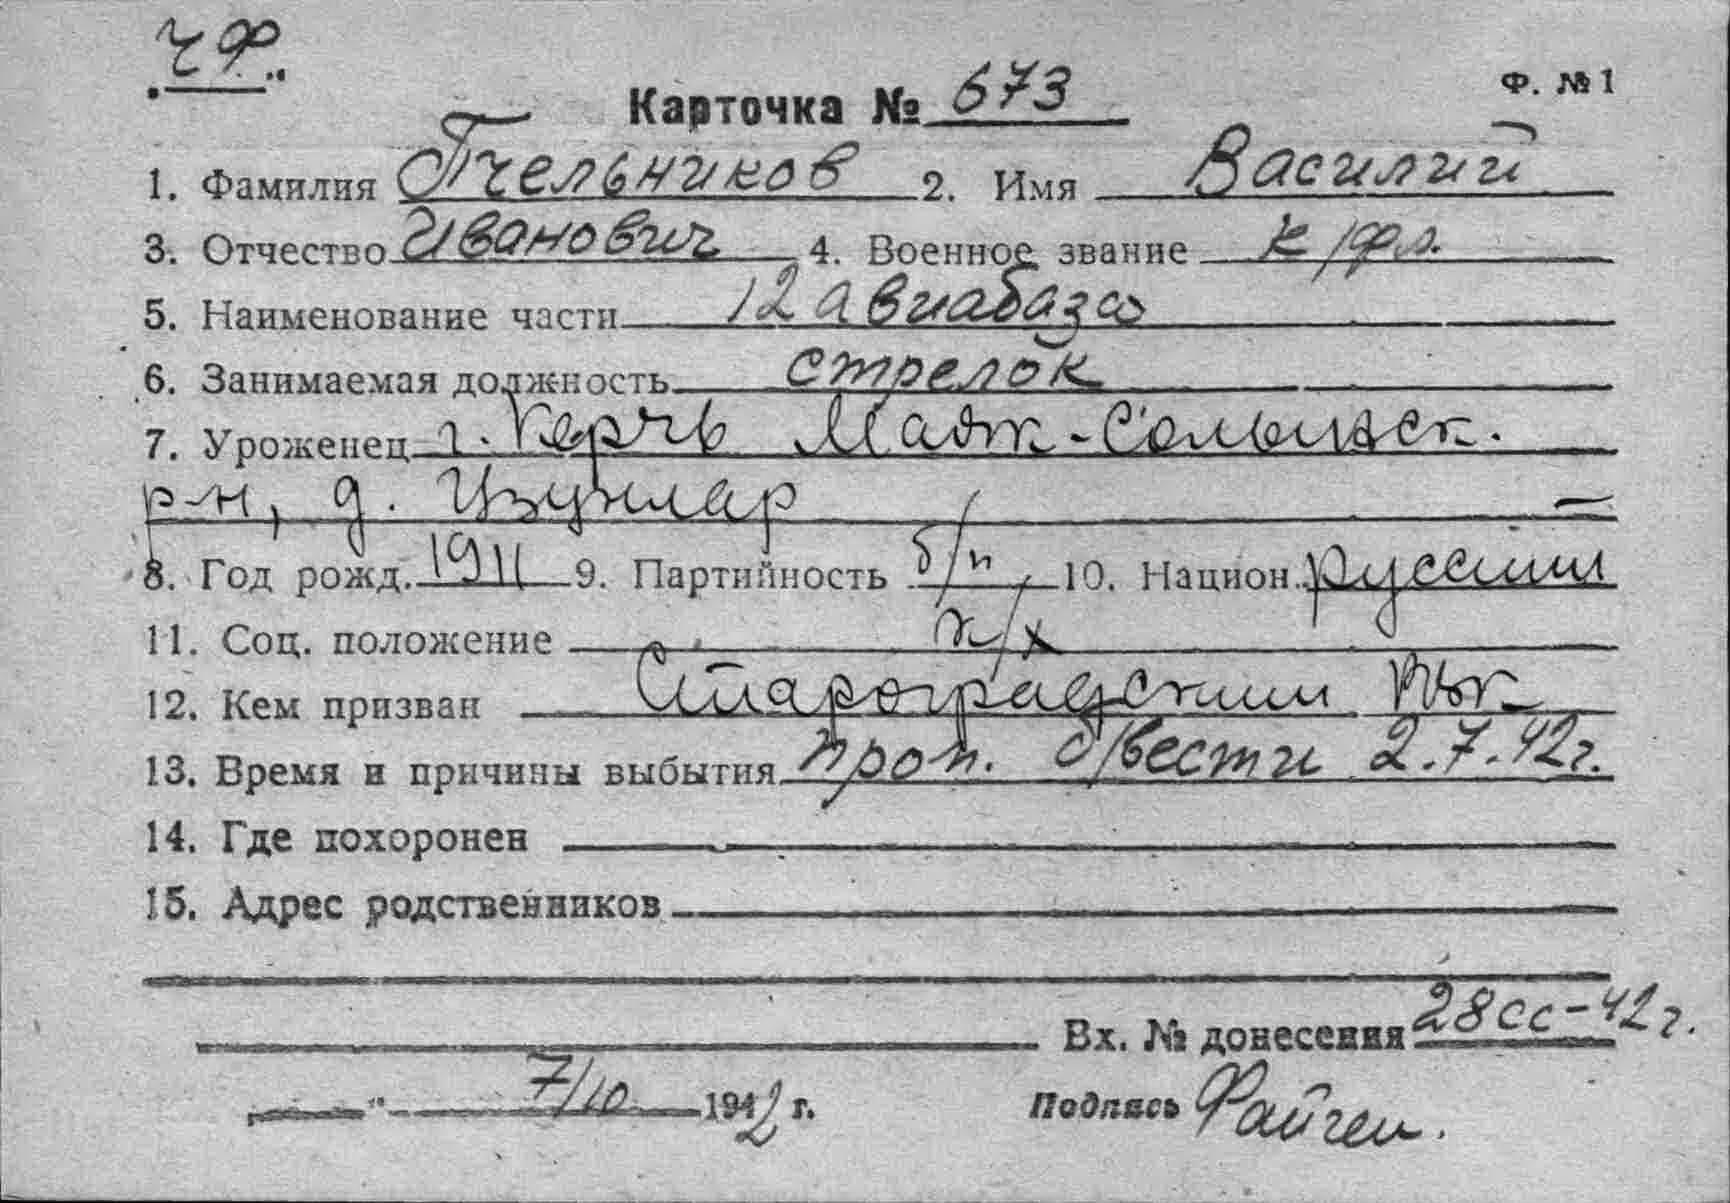 ЧФ
Ф. № 1
Карточка № 673
1. Фамилия Пчельников 2. Имя Василий
3. Отчество Иванович 4. Военное звание к/фл.
5. Наименование части 12 авиабаза
6. Занимаемая должность стрелок
7. Уроженец г. Керчь Маяк-Салынск.
р-н, д. Узунлар
8. Год рожд. 1911 9. Партийность б/п, 10. Национ. русский
11. Соц. положение к/х
12. Кем призван РВК
13. Время и причины выбытия проп. б/вести 2.7.42г.
14. Где похоронен
15. Адрес родственников
Вх. № донесения 28сс-42г.
" 7/10 1942 г. Подпись